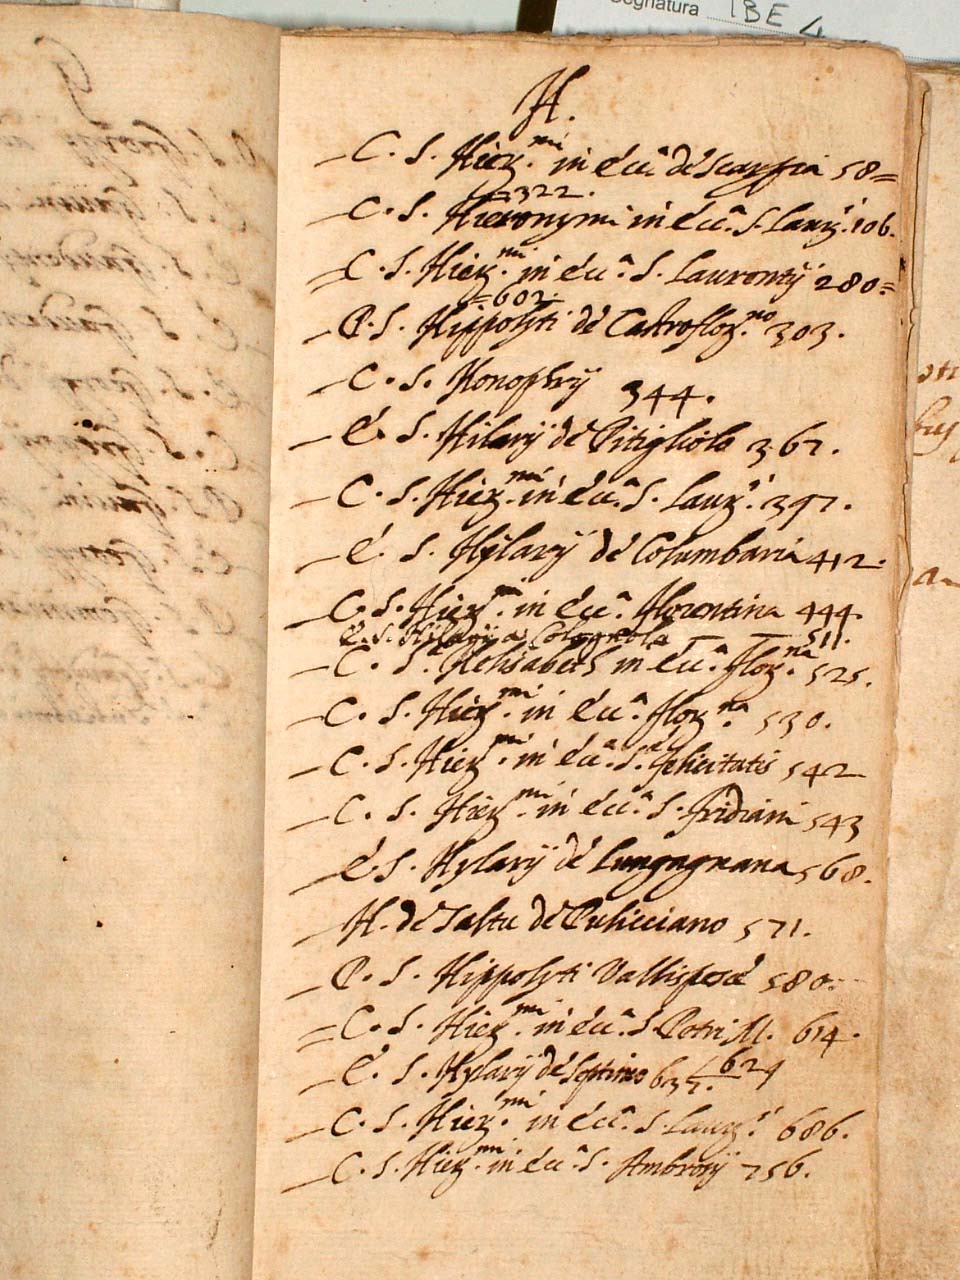 Segnatura IBE 4
H.
C. S. Hier.mi in écc. dé Scarpia 58=
=322.
C. S. Hieronymi in écc.a S. Laur.i 106.
C. S. Hier.mi in écc.a S. Laurentij 280=
=602.
P. S. Hippolyti dé Castroflor.no 303.
C. S. Honophrij 344.
É. S. Hilarij dé Pitigliolo 367.
C. S. Hier.mi in écc.a S. Laur.i 397.
É. S. Hylarij dé Columbaria 412.
C. S. Hier.mi in écc.a florentina 444.
É. S. Hilarij a Colognole — — 511.
C. S. Helisabeth in écc.a flor.na 525.
C. S. Hier.mi in écc.a flor.na 530.
C. S. Hier.mi in écc.a S.ae felicitatis 542
C. S. Hier.mi in écc.a S. fridiani 543
É. S. Hylarij dé Lungagnana 568.
H. dé Saltu dé Puliciano 571.
P. S. Hippolyti Vallispesé 580.
C. S. Hier.mi in écc.a S. Petri M. 614.
É. S. Hylarij dé Septimo 637. 624
C. S. Hier.mi in écc.a S. Laur.i 686.
C. S. Hier.mi in écc.a S. Ambrosij 756.